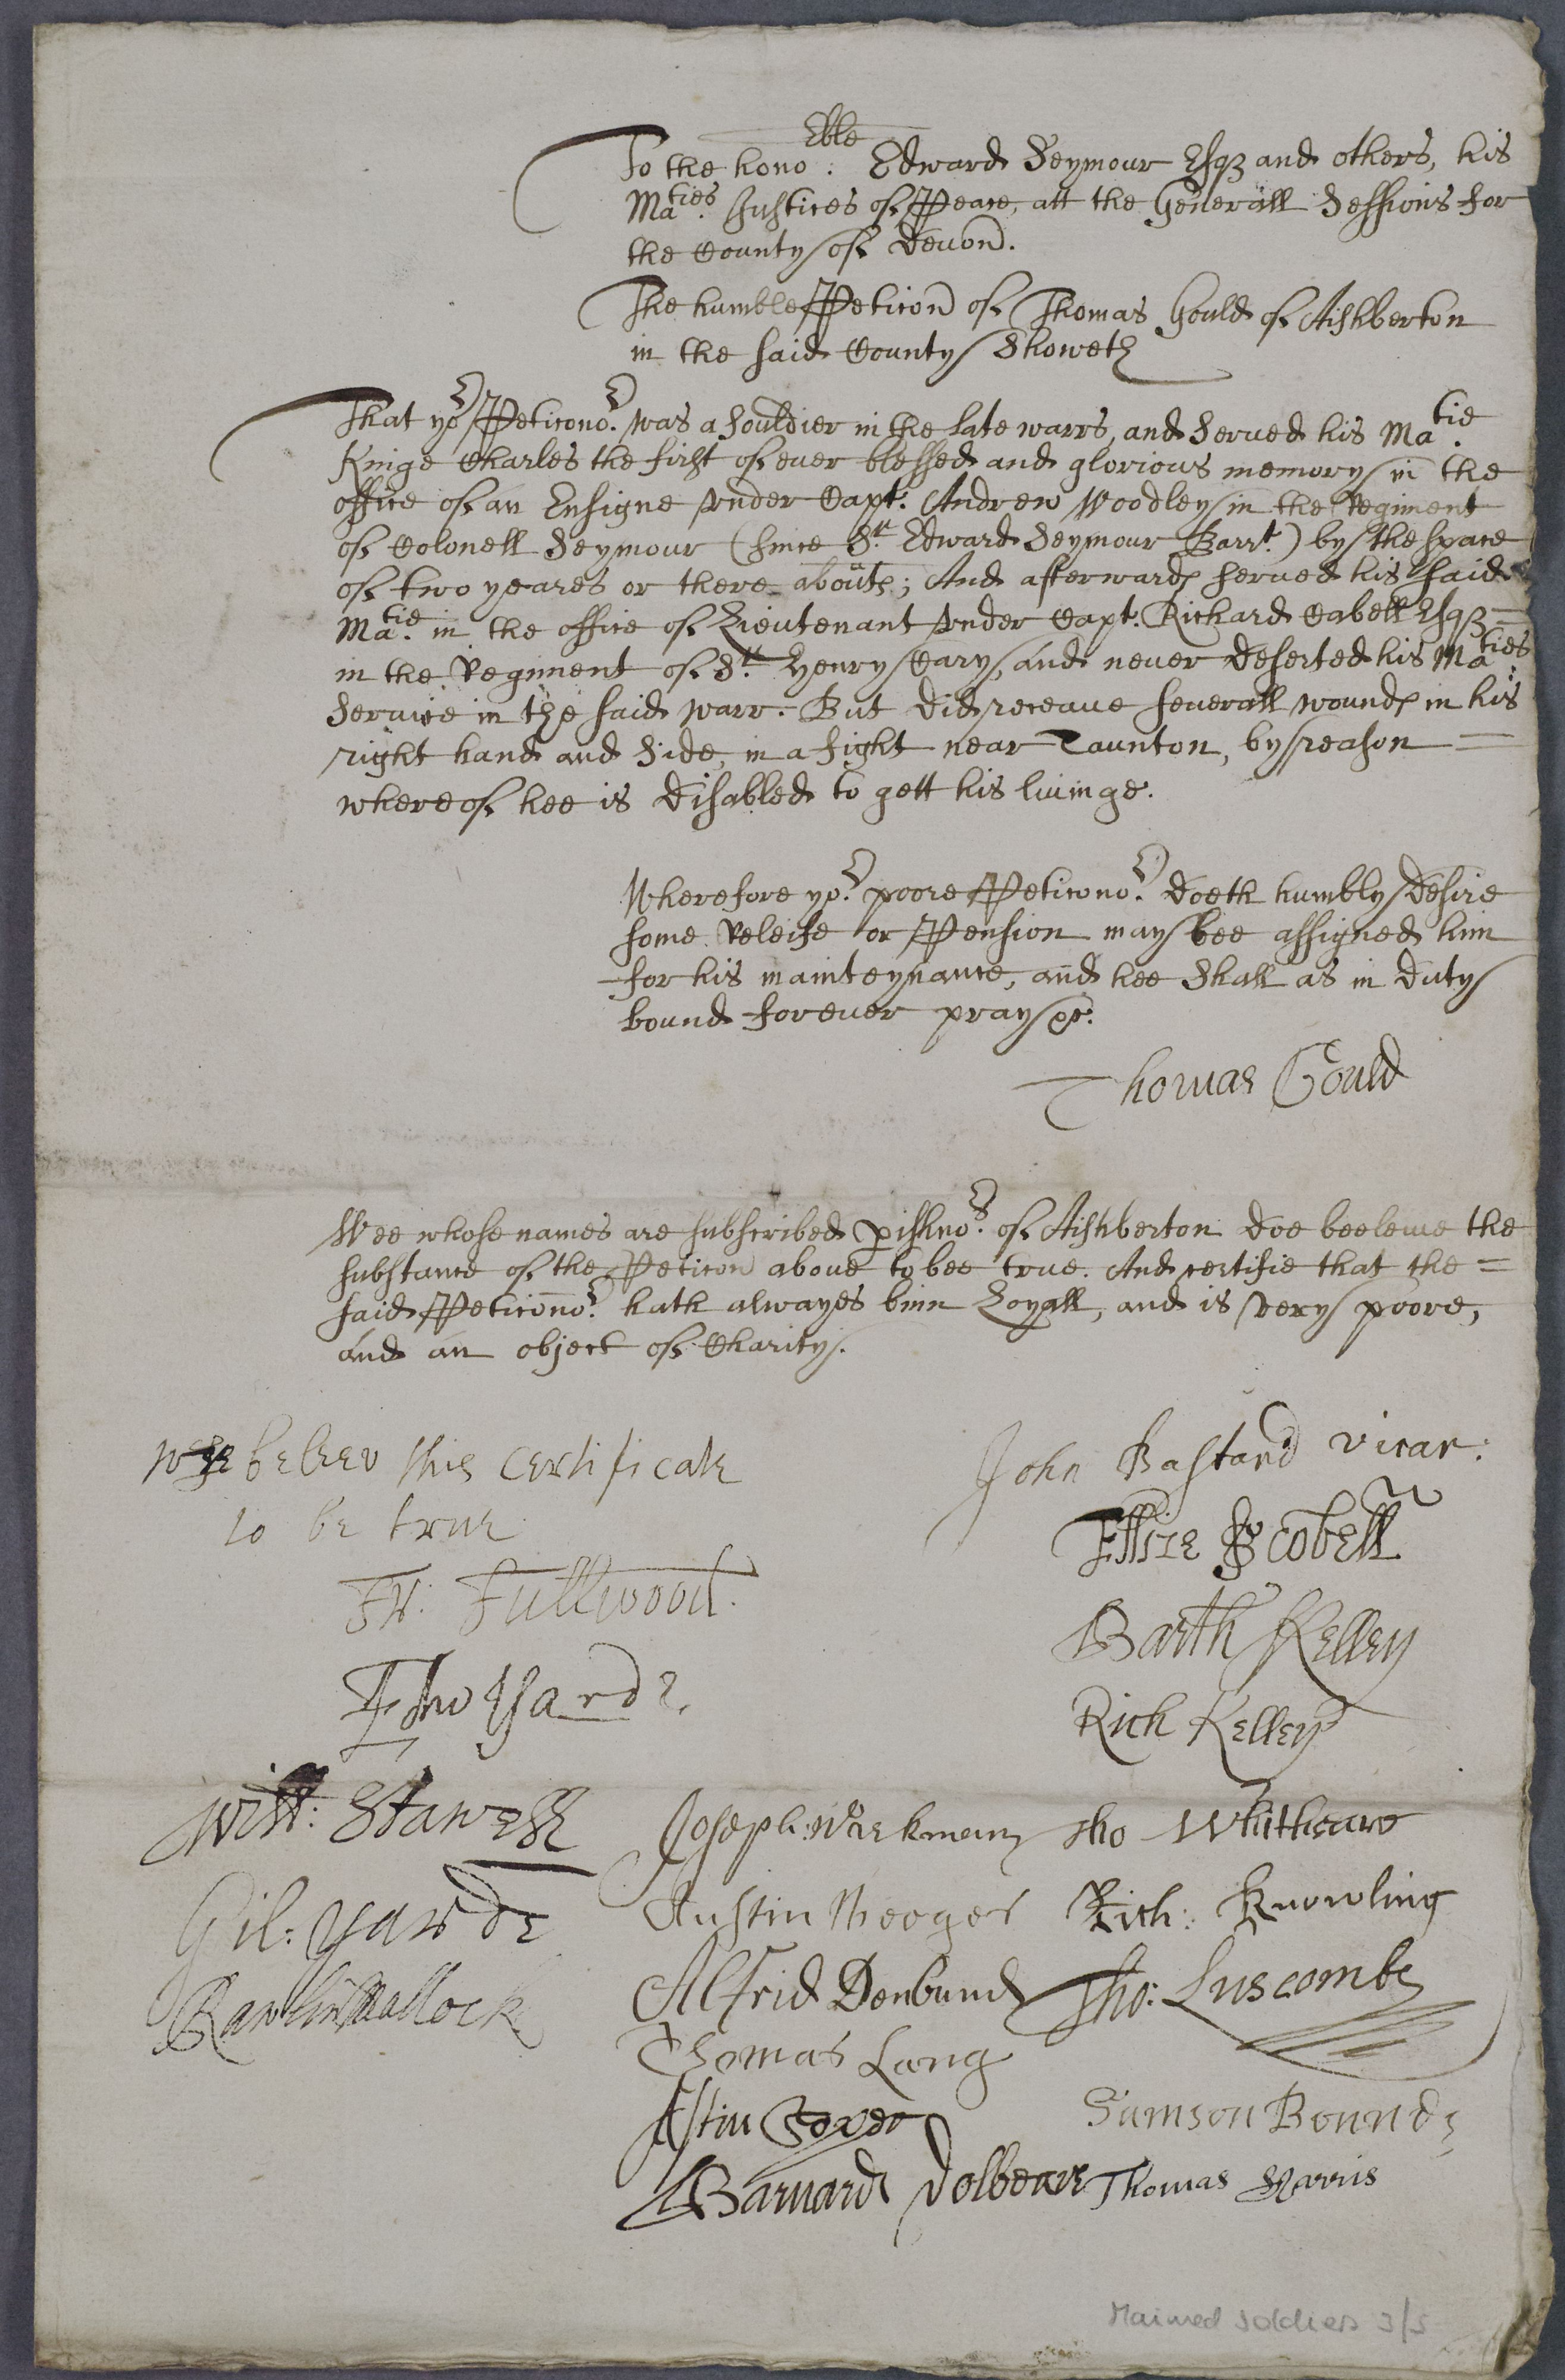 To the hono:ble Edward Seymour Esqȝ and others, his
Maties. Justices of Peace, att the Generall Sessions for
the County of Devon.
The humble Peticon of Thomas Gould of Aishberton
in the said County Sheweth
That yor Peticonor. was a souldier in the late warrs, and served his Matie.
Kinge Charles the first of ever blessed and glorious memory in the
office of an Ensigne vnder Capt. Andrew Woodley in the Regiment
of Colonell Seymour (since Sr. Edward Seymour Barrt.) by the space
of two yeares or there aboutes; And afterwardes served his said
Matie. in the office of Lieutenant vnder Capt. Richard Cabell Esqȝ =
in the Regiment of Sr. Henry Cary, and never deserted his Maties.
Service in the said warr. But did receaue severall woundes in his
right hand and side, in a fight near Taunton, by reason =
whereof hee is disabled to gett his livinge.
Wherefore yor. poore Peticonor. doeth humbly desire
some Releife or Pension may bee assigned him
for his mainteynance, and hee shall as in duty
bound forever pray &c.
Thomas Gould
Wee whose names are subscribed pishnors. of Aishberton doe beeleive the
substance of the Peticon above to bee true. And certifie that the =
said Peticonor. hath alwayes binn Loyall, and is very poore,
and an object of Charity.
wee beleev this certificate
to be true
John Bastard vicar:
Fr: Fullwood.
Ellize Scobell
Tho Yarde.
Barth Kelley
Rich Kelley
Will: Stawell
Joseph: Tho Whiteare
Gil: Yarde
Austin Rich: Knowling
Rawlin Mallock
Alfrid Denbund Tho: Luscombe
Thomas Lang
Samson Bounde
Barnard Dolbeare Thomas Harris
Maimed soldiers 3/5